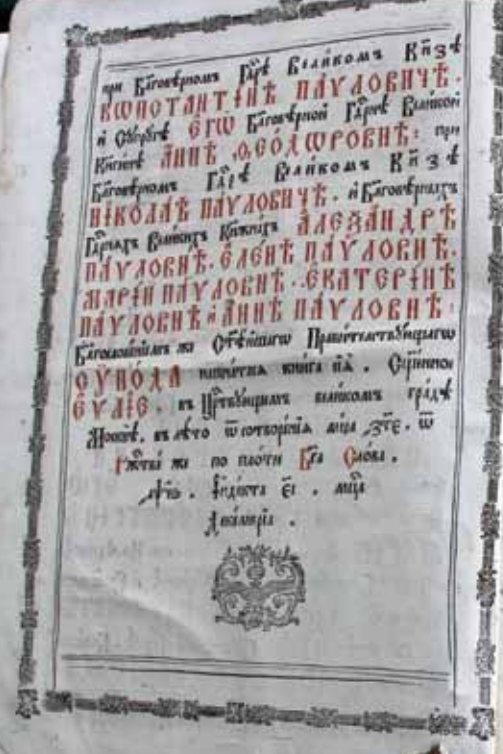 при Бл҃говѣрномъ Гдⷭ҇рѣ Вели́комъ Кн҃зѣ
КѠНСТАНТІ́НѢ ПА́ѴЛОВИЧѢ.
и҆ Сꙋпрꙋ́гѣ Е҆ГѠ̀ Бл҃говѣ́рной Гдⷭ҇рнѣ Вели́кой
Кнги́нѣ А҆́ННѢ ѲЕО́ДѠРОВНѢ: при
Бл҃говѣ́рномъ Гдⷭ҇рѣ Вели́комъ Кн҃зѣ
НІКОЛА́Ѣ ПА́ѴЛОВИЧѢ. и҆ Бл҃говѣ́рныхъ
Гдⷭ҇рняхъ Вели́кихъ Княжна́хъ А҆ЛЕѮА́НДРѢ
ПА́ѴЛОВНѢ. Е҆ЛЕ́НѢ ПА́ѴЛОВНѢ.
МАРІ́И ПА́ѴЛОВНѢ. Е҆КАТЕРІ́НѢ
ПА́ѴЛОВНѢ и҆ А҆́ННѢ ПА́ѴЛОВНѢ:
Бл҃гослове́нїемъ же Ст҃ѣ́йшагѡ Прави́тельствꙋющагѡ
СѴНО́ДА напеча́тася кни́га сїѧ̀. Сщ҃е́нное
Е҆Ѵ҃ЛІЕ. въ Црⷭ҇твꙋющемъ вели́комъ гра́дѣ
Москвѣ̀, въ лѣ́то ѿ сотворе́нїѧ мі́ра ҂зт҃е. ѿ
Ржⷭ҇тва́ же по пло́ти Бг҃а Сло́ва.
І҆ндікта е҃і. мцⷭ҇а
Декемврі́а.